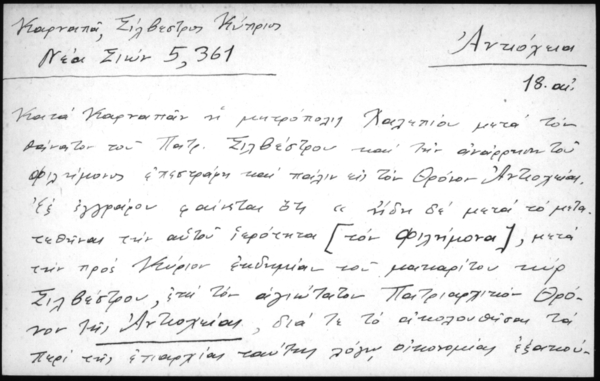 Καρναπᾶ, Σίλβεστρος Κύπριος
Νέα Σιών 5, 361
Ἀντιόχεια
18. αἰ.
Κατά Καρναπᾶν ἡ μητρόπολις Χαλεπίου μετά τόν
θάνατον τοῦ Πατρ. Σιλβέστρου καί τήν ἀνάρρησιν τοῦ
Φιλήμονος ἐπεστράφη καί πάλιν εἰς τόν Θρόνον Ἀντιοχείας.
Ἐξ ἐγγράφου φαίνεται ὅτι « ἤδη δέ μετά τό μετα-
τεθῆναι τήν αὐτοῦ ἱερότητα [τόν Φιλήμονα], μετά
τήν πρός Κύριον ἐκδημίαν τοῦ μακαρίτου κύρ
Σιλβέστρου, ἐπί τόν ἁγιώτατον Πατριαρχικόν Θρό-
νον τῆς Ἀντιοχείας, διά τε τό ἀκολουθῆσαι τά
περί τῆς ἐπαρχίας ταύτης λόγῳ οἰκονομίας ἐξακού-